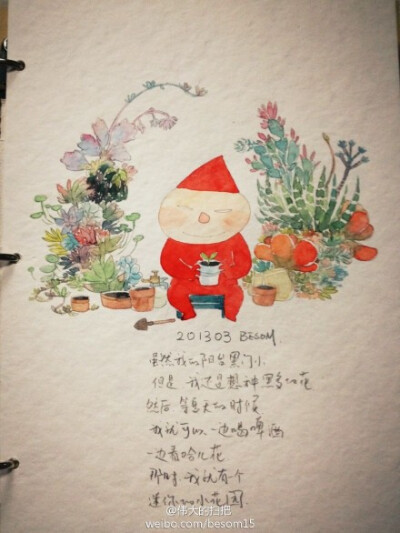 201303 BESOM.
虽然我的阳台黑门小
但是 我还是想种 很多的花
然后 等夏天的时候
我就可以 一边喝啤酒
一边看哈儿花
那时 我就有个
迷你的小花园
@伟大的扫把
weibo.com/besom15